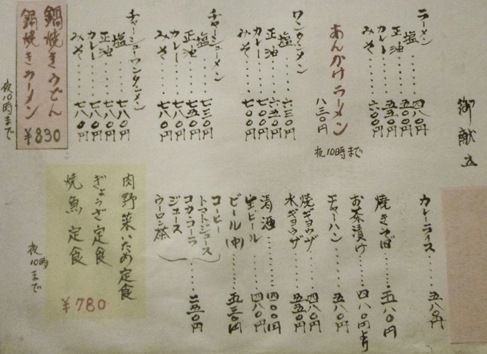 御献立
ラーメン
塩……四八〇円
正油……五五〇円
カレー……六〇〇円
みそ……六〇〇円
あんかけラーメン
八三〇円
夜10時まで
ワンタンメン
塩……
正油……
カレー……七〇〇円
みそ……七〇〇円
チャーシューメン
塩……七三〇円
正油……七五〇円
カレー
みそ
チャーシューワンタンメン
塩……七八〇円
正油……七八〇円
カレー
みそ
鍋焼きうどん
鍋焼きラーメン
¥830
夜10時まで
カレーライス……五八〇円
焼きそば……五八〇円
お茶漬け……四八〇円より
チャーハン……五八〇円
焼ギョウザ……四八〇円
水ギョウザ……五五〇円
清酒……四〇〇円
生ビール……四八〇円
ビール(中)……五三〇円
コーヒー
トマトジュース
コカ・コーラ
ジュース
ウーロン茶
……二五〇円
肉野菜いため定食
ぎょうざ定食
焼魚定食
¥780
夜10時まで